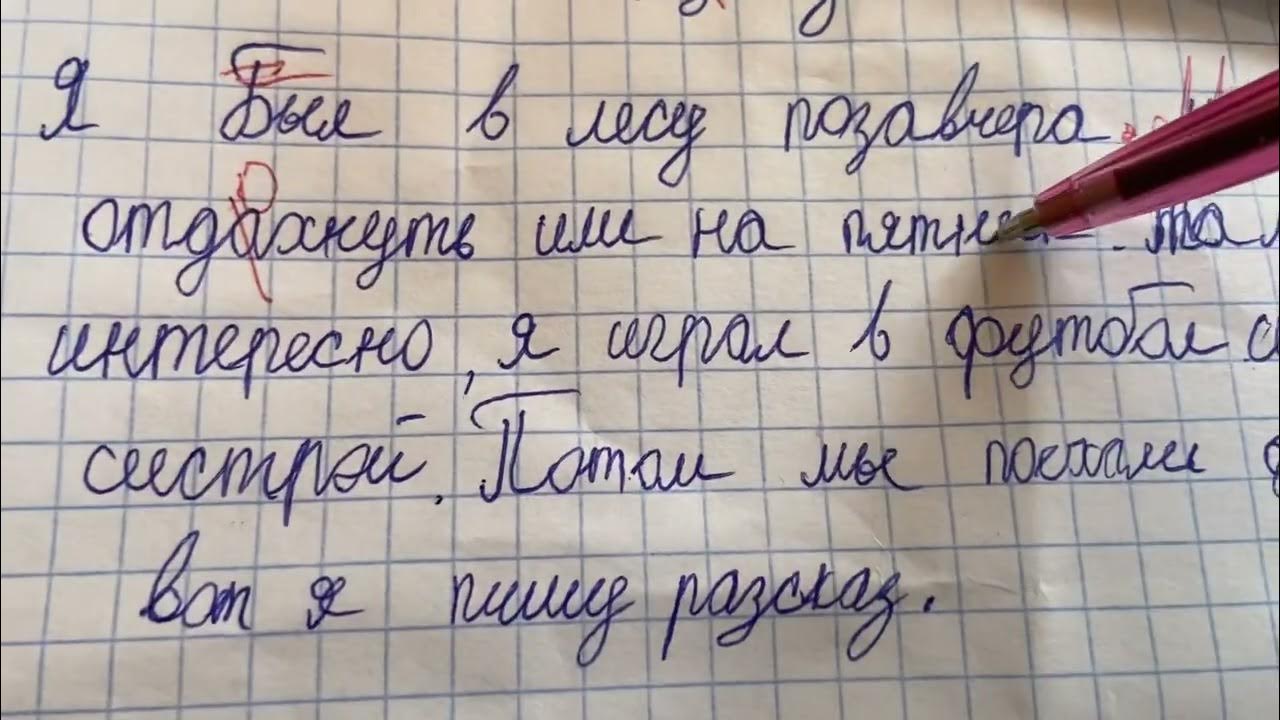 Я Был в лесу позавчера.
отдахнуть или на пятни
интересно, я играл в футбол с
систрой. Потом мы поехали
вот я пишу разсказ.